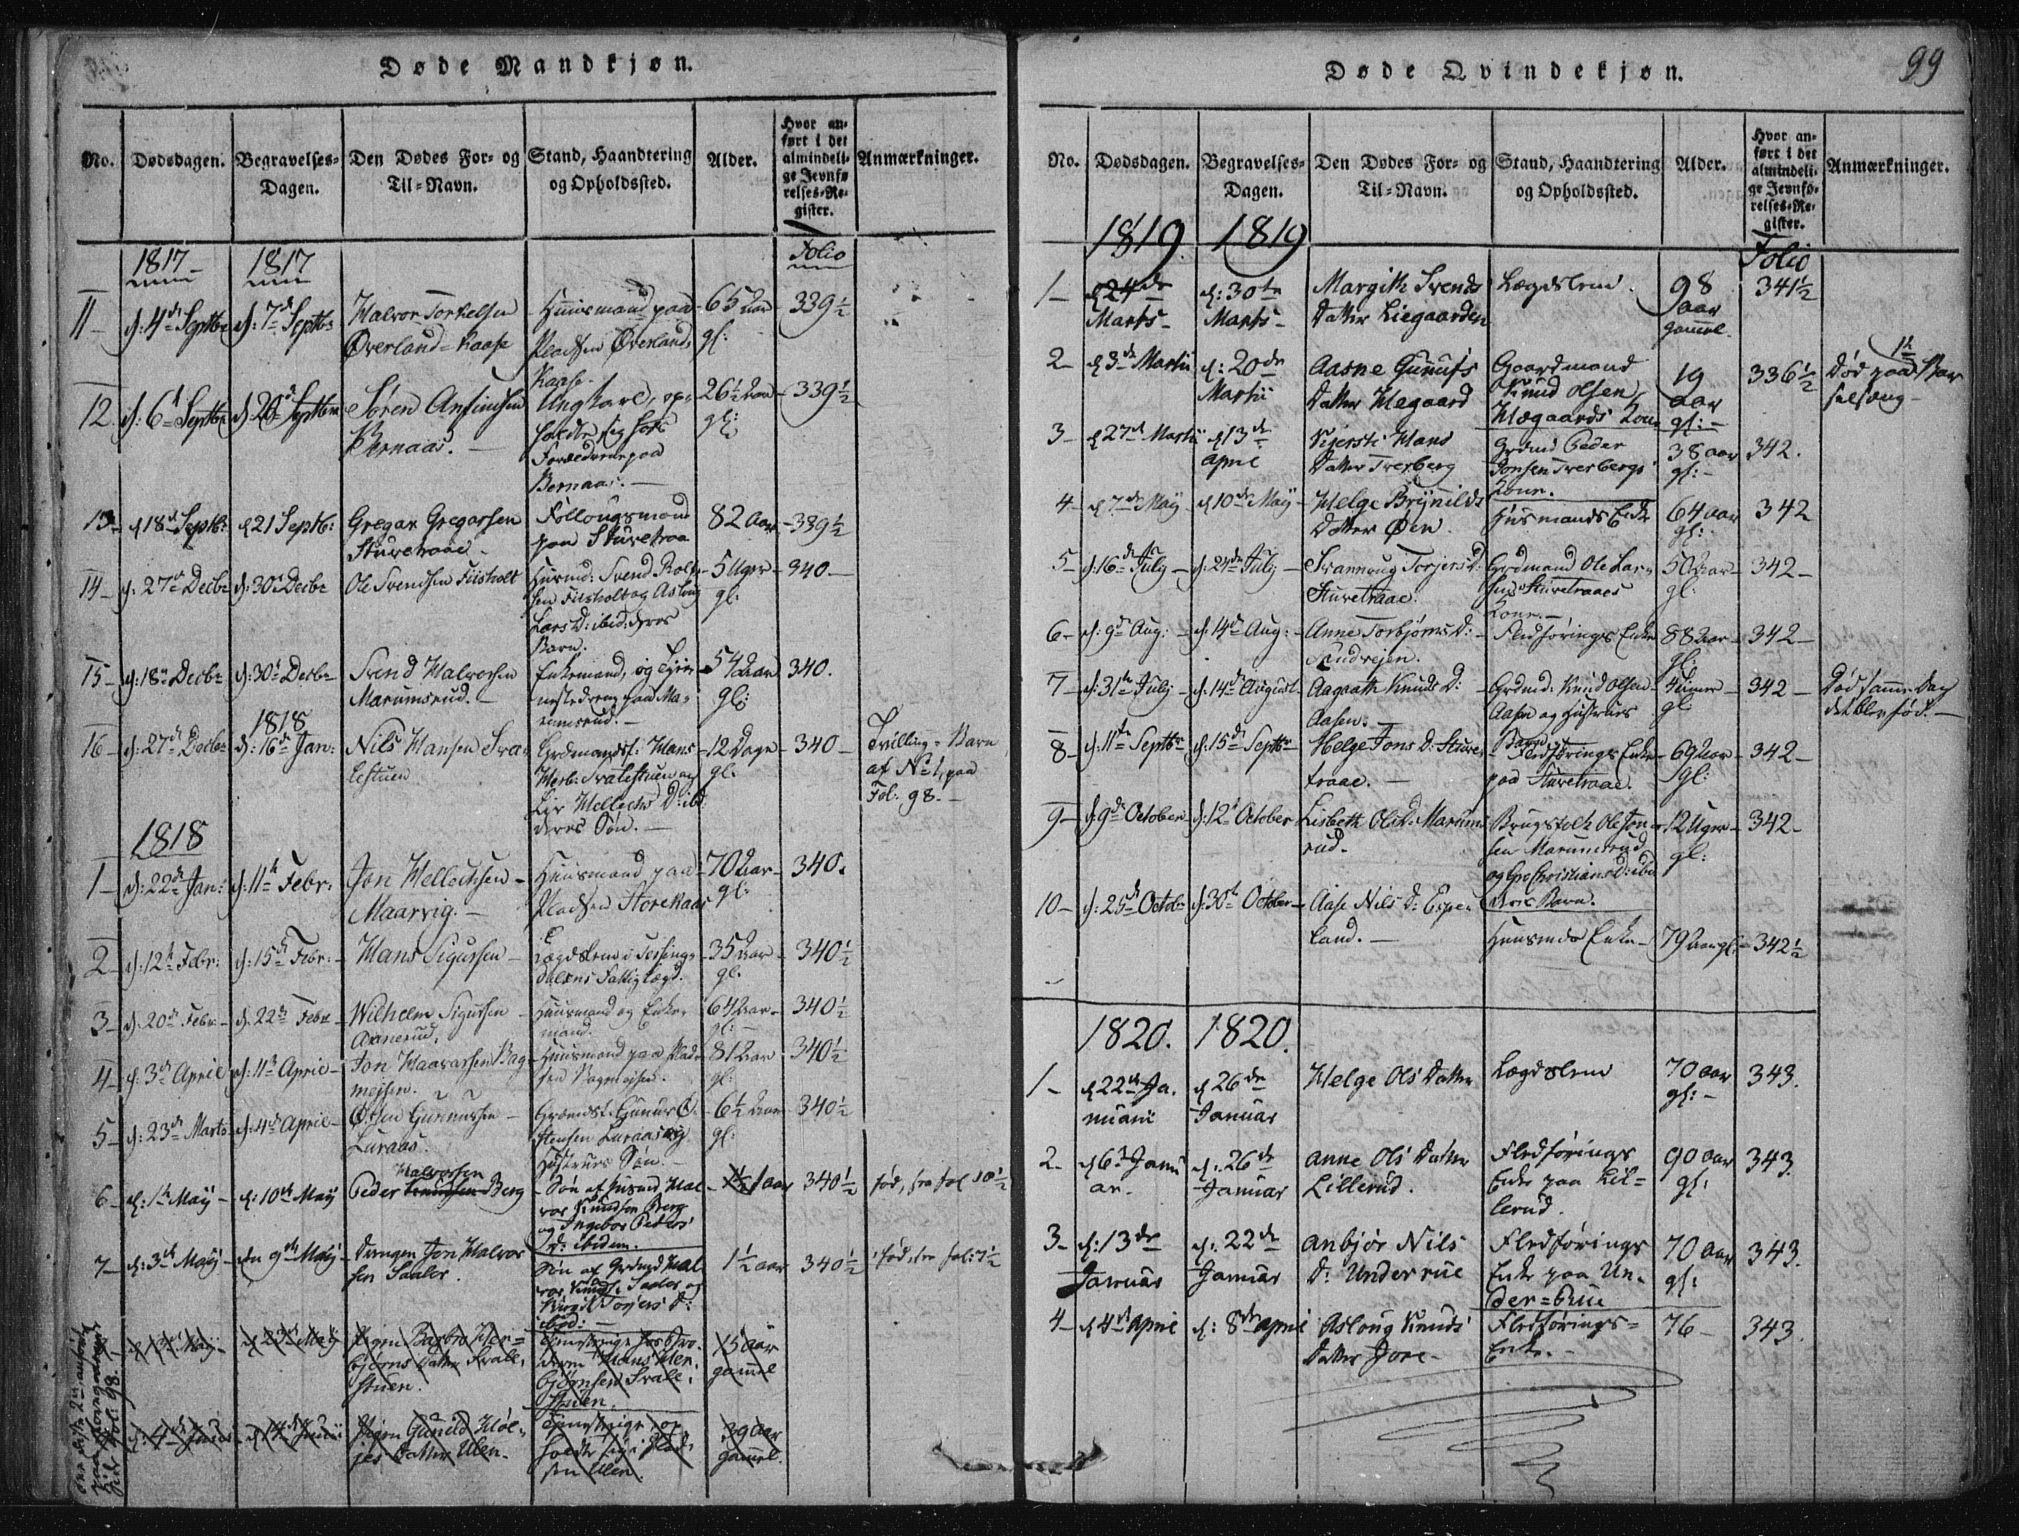 Døde Mandkjøn.
No.
Dødsdagen.
Begravelses-
Dagen.
Den Dødes For- og
Til-Navn.
Stand, Haandtering
og Opholdssted.
Alder.
Hvor an-
ført i det
almindeli-
ge Jevnfø-
relses-Re-
gister.
Anmærkninger.
1817 1817 Folio
11 d: 4de Septbr d: 7de Septbr
Halvor Torkelsen
Øverland-Kaase
Huusmand paa
Pladsen Øverlands
Kaase
65 Aar
gl:
339½
12. d: 6t Septbr d 20d Septbr
Søren Ansimsen
Bernaas.
Ungkarl, op-
holdte sig hos
Forældrene paa
Bernaas.
26½ Aar
gl:
339½
13 d 18d Septb: d 21 Septb:
Gregar Gregarsen
Stuvetraae
Føllougsmand
paa Stuvetraa
82 Aar
339½
14 d. 27de Decbr d: 30t Decbr
Ole Svendsen Fiisholt
Huusmd: Svend Rolf-
sen Fiisholt og Asloug
Lars D: ibid: deres
Barn.
5 Uger
gl:
340
15 d: 18de Decbr d: 30t Decbr
Svend Halvorsen
Marumsrud.
Enkemand, og
paa Ma-
rumsrud.
54 Aar
gl:
340.
1818
16 d: 27de Decbr d: 16de Jan:
Nils Hansen Tra-
lestuen
Hans
Herb: Tralestuen og
Liv Hellechs D: ibd
deres Søn.
12 Dage
gl:
340
Trilling-Barn
af No 1, paa
Fol. 98.
1818
1 d: 22de Jan: d: 11te Febr:
Jon Hellechsen
Maarvig.
Huusmand paa
Pladsen Storekaas
70 Aar
gl:
340.
2 d: 12te Febr: d: 15de Febr:
Hans Sigursen
Lægdslem i Tessung-
dalens Fattiglægd.
35 Aar
gl.
340½
3 d. 20de Febr d. 22de Febr
Wilhelm Sigursen
Aanerud.
Huusmand og Enke-
mand.
64 Aar
gl:
340½
4 d. 3de April d: 11te April
Jon Haavarsen Bag-
mejen.
Huusmand paa Plad-
sen Bagmejen.
81 Aar
gl:
340½
5 d. 23de Marts d: 4de April
Østen Gunnulfsen
Luraas.
Gunnuf Ø-
stensen Luraas og
Hustrues Søn.
6½ Aar
gl:
340½
6 d: 1te Maÿ d: 10de Maÿ
Halvorsen
Peder Knudsen Berg
Søn af Husmd Hal-
vor Knudsen Berg
og Ingebor Peders
D: ibidem.
1 aar
340½
fød, fra fol 10½
7 d: 3de Maÿ den 9de Maÿ
Drengen Jon Halvor
sen Saalor.
Søn af Grdmd Hal-
vor Knuds: Saalor og
Birgit Torjers D:
ibid:
1½ aar
340½
fød, fra fol: 7½
d 23de Maÿ
Pigen Barbro Her-
bjørns Datter Trale-
stuen.
Hans Her-
bjørnsen Trale-
stuen.
aar
gammel
d: 4de Junii d 14de Junii
Pigen Gunild Kløl-
jes Datter Ulen.
Ulen.
39 aar
gammel.
99
Døde Qvindekjøn.
No.
Dødsdagen.
Begravelses-
Dagen.
Den Dødes For- og
Til-Navn.
Stand, Haandtering
og Opholdssted.
Alder.
Hvor an-
ført i det
almindeli-
ge Jevnfø-
relses-Re-
gister.
Anmærkninger.
1819. 1819
Folio
1 d 24de
Marts
d: 30te
Marts
Margith Svends
Datter Liegaarden
Lægdslem.
98
aar
gammel.
341½
2 d 3de Martii
d: 20de
Martii
Aasne Gunufs
Datter Hægaard
Gaardmand
Knud Olsen
Hægaards Kone
19
aar
gl:
336½
Død paa
Barselseng
3 d 27de Martii d 13de
April
Kjersti Hans
Datter Tverberg
Grdmd Peder
Jonsen Tverbergs
Kone.
38 aar
gl:
342.
4 d 7de Maÿ d 10de Maÿ
Helge Brÿnilds
Datter Øen.
Husmands Enke
64 aar
gl:
342
5 d: 16de July d: 24de July
Svannoug Torjers D:
Stuvetraae.
Grdmand Ole Lar-
sens Stuvetraaes
Kone.
50 Aar
gl:
342
6 d: 9de Aug: d: 14de Aug:
Anne Torbjørns D:
Sandvejen.
Fledførings Enke
88 Aar
gl:
342
7 d: 31te July d: 14de August
Aagaath Knuds D:
Aasen.
Grdmd: Knud Olsen
Aasen og Hustrues
Barn.
4 Timer
gl
342
Død samme Dag
det blev fød.
8 d: 11te Septbr d: 15de Septbr
Helge Jons D: Stuve-
traae.
Fledførings Enke
paa Stuvetraae.
69 Aar
gl:
342
9 d: 9de October d: 12te October
Lisbeth Ols D: Marums
rud.
Brugsfolk Ole Jon-
sen Marumsrud
og Gro Christians D: ibd
deres Barn.
12 Uger
gl:
342
10 d: 25de Octobr d: 30te October
Aase Nils D: Espe-
land.
Huusmds Enke
79 Aar gl:
342½
1820. 1820.
1 d 22de Ja-
nuarii
d 26de
Januar
Helge Ols Datter
Lægdslem
70 aar
gl:
343.
2 d 6te Janu
ar.
d: 26de
Januar
Anne Ols Datter
Lillerud.
Fledførings
Enke paa Lil-
lerud.
90 aar
gl:
343.
3 d: 13de
Januar
d: 22de
Januar
Anbjør Nils
D: Underrue
Fledførings
Enke paa Un-
der-Rue
70 aar
gl:
343.
4 d 4de April d: 8de April
Asloug Knuds
Datter Jore
Fledførings-
Enke.
76
343.